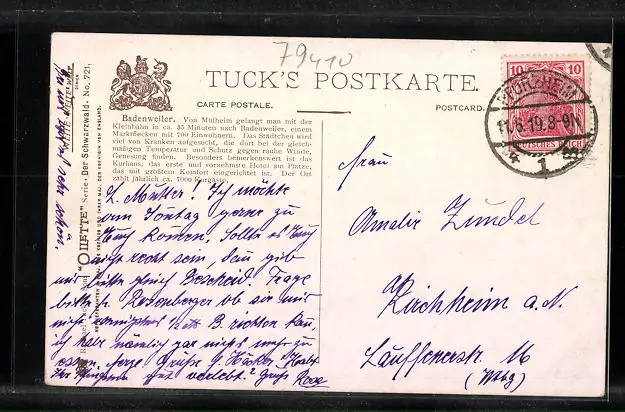 79410
TUCK'S POSTKARTE.
CARTE POSTALE.
POSTCARD.
10 10
DEUTSCHES REICH
PFORZHEIM
11.6.19.8-9V.
1
Badenweiler. Von Mülheim gelangt man mit der
Kleinbahn in ca. 35 Minuten nach Badenweiler, einem
Marktflecken mit 700 Einwohnern. Das Städtchen wird
viel von Kranken aufgesucht, die dort bei der gleich-
mäßigen Temperatur und Schutz gegen rauhe Winde,
Genesung finden. Besonders bemerkenswert ist das
Kurhaus, das erste und vornehmste Hotel am Platze,
das mit grossem Komfort eingerichtet ist. Der Ort
zählt jährlich ca. 7000 Kurgäste.
"OILETTE" Serie. Der Schwarzwald. No. 721.
L. Mutter! Ich möchte
am Sontag gerne zu
Euch kommen. Sollte es Euch
nicht recht sein, dann gib
mir bitte gleich Bescheid. Frage
bitte b. ob sie mir
nicht B. richten kann,
ich habe nämlich gar nichts mehr zu
essen. Grüße
verlebt? Gruß Rosa
Frau
Amalie Zündel
Kirchheim a. N.
Lauffenerstr. 16
(Wtbg)